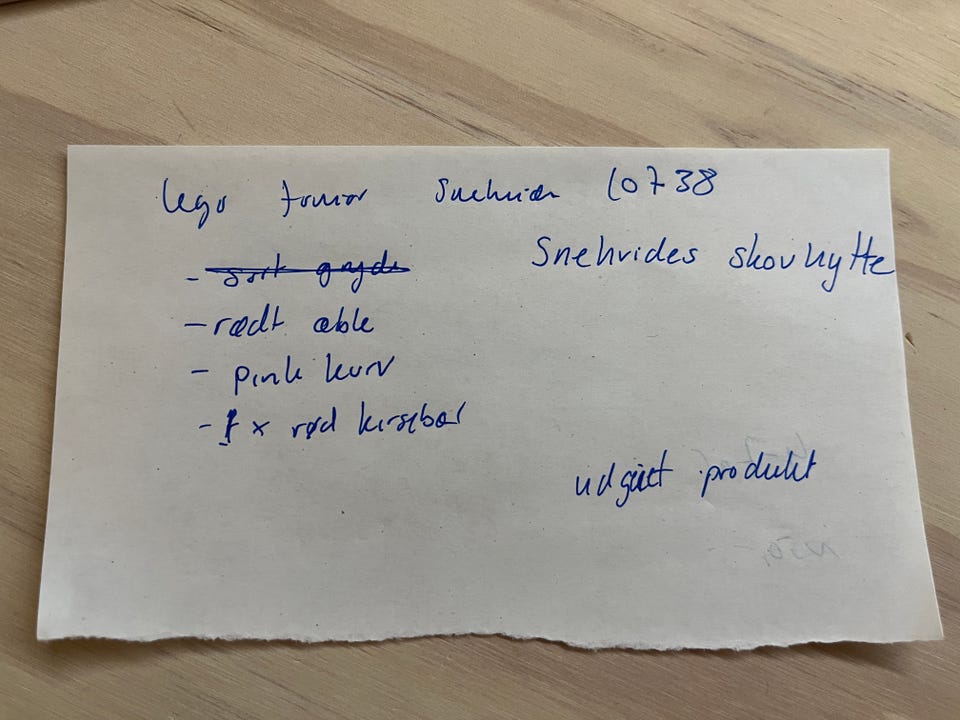 Lego Junior Snehvide 10738
Snehvides skovhytte
- rødt æble
- pink kurv
- 1 x rød kirsebær
udgået produkt